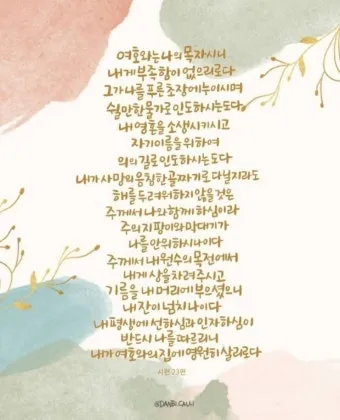 여호와는 나의 목자시니
내게 부족함이 없으리로다
그가 나를 푸른 초장에 누이시며
쉴만한 물가로 인도하시는도다
내 영혼을 소생시키시고
자기 이름을 위하여
의의 길로 인도하시는도다
내가 사망의 음침한 골짜기로 다닐지라도
해를 두려워하지 않을 것은
주께서 나와 함께 하심이라
주의 지팡이와 막대기가
나를 안위하시나이다
주께서 내 원수의 목전에서
내게 상을 차려 주시고
기름을 내 머리에 부으셨으니
내 잔이 넘치나이다
내 평생에 선하심과 인자하심이
반드시 나를 따르리니
내가 여호와의 집에 영원히 살리로다
시편 23편
@DANBI.CALLI